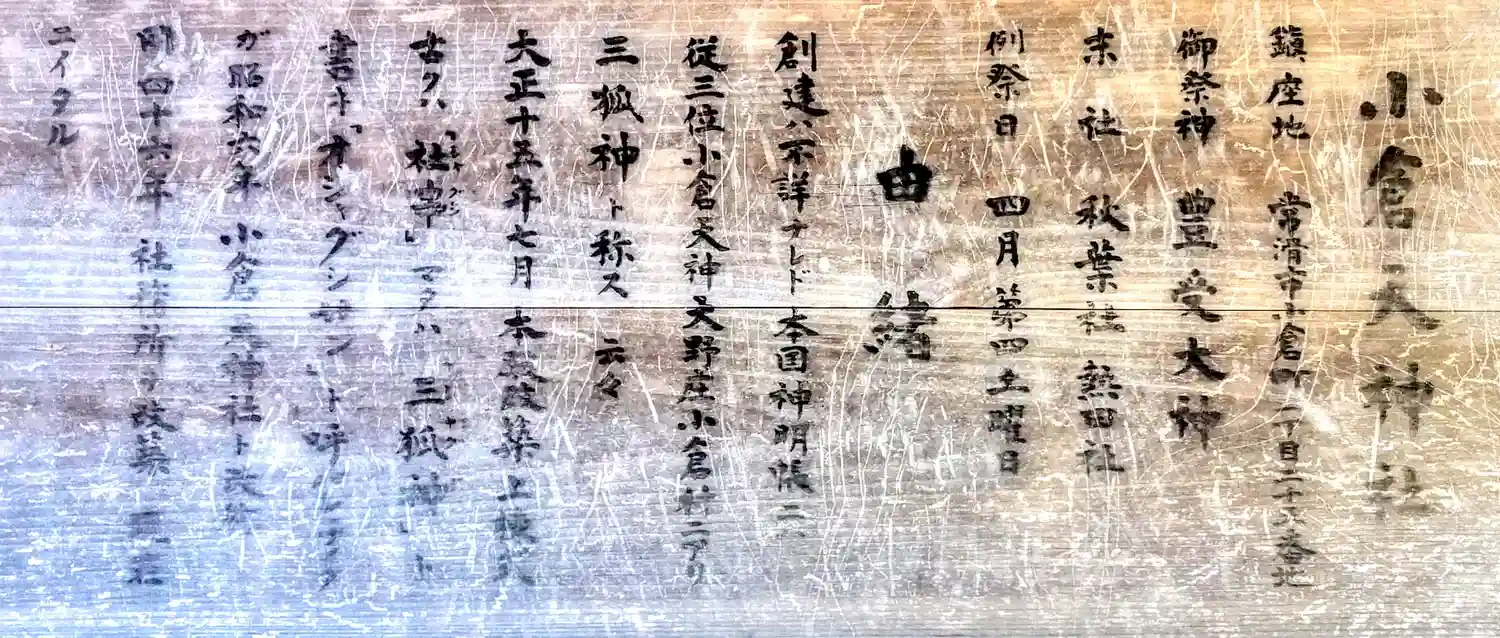 小倉天神社
鎮座地 常滑市小倉町二丁目二十六番地
御祭神 豊受大神
末社 秋葉社 熱田社
例祭日 四月第四土曜日
由緒
創建ハ不詳ナレド本国神明帳ニ
従三位小倉天神 大野庄小倉村ニアリ
三狐神ト称ス 云々
大正十五年七月 本殿改築 上棟
古クハ「社宮」マタハ 三狐神」ト
書キ「オシャグジサン」ト呼
ガ昭和六年 小倉天神社ト
四十六年 社務所ヲ改築
ニイタル